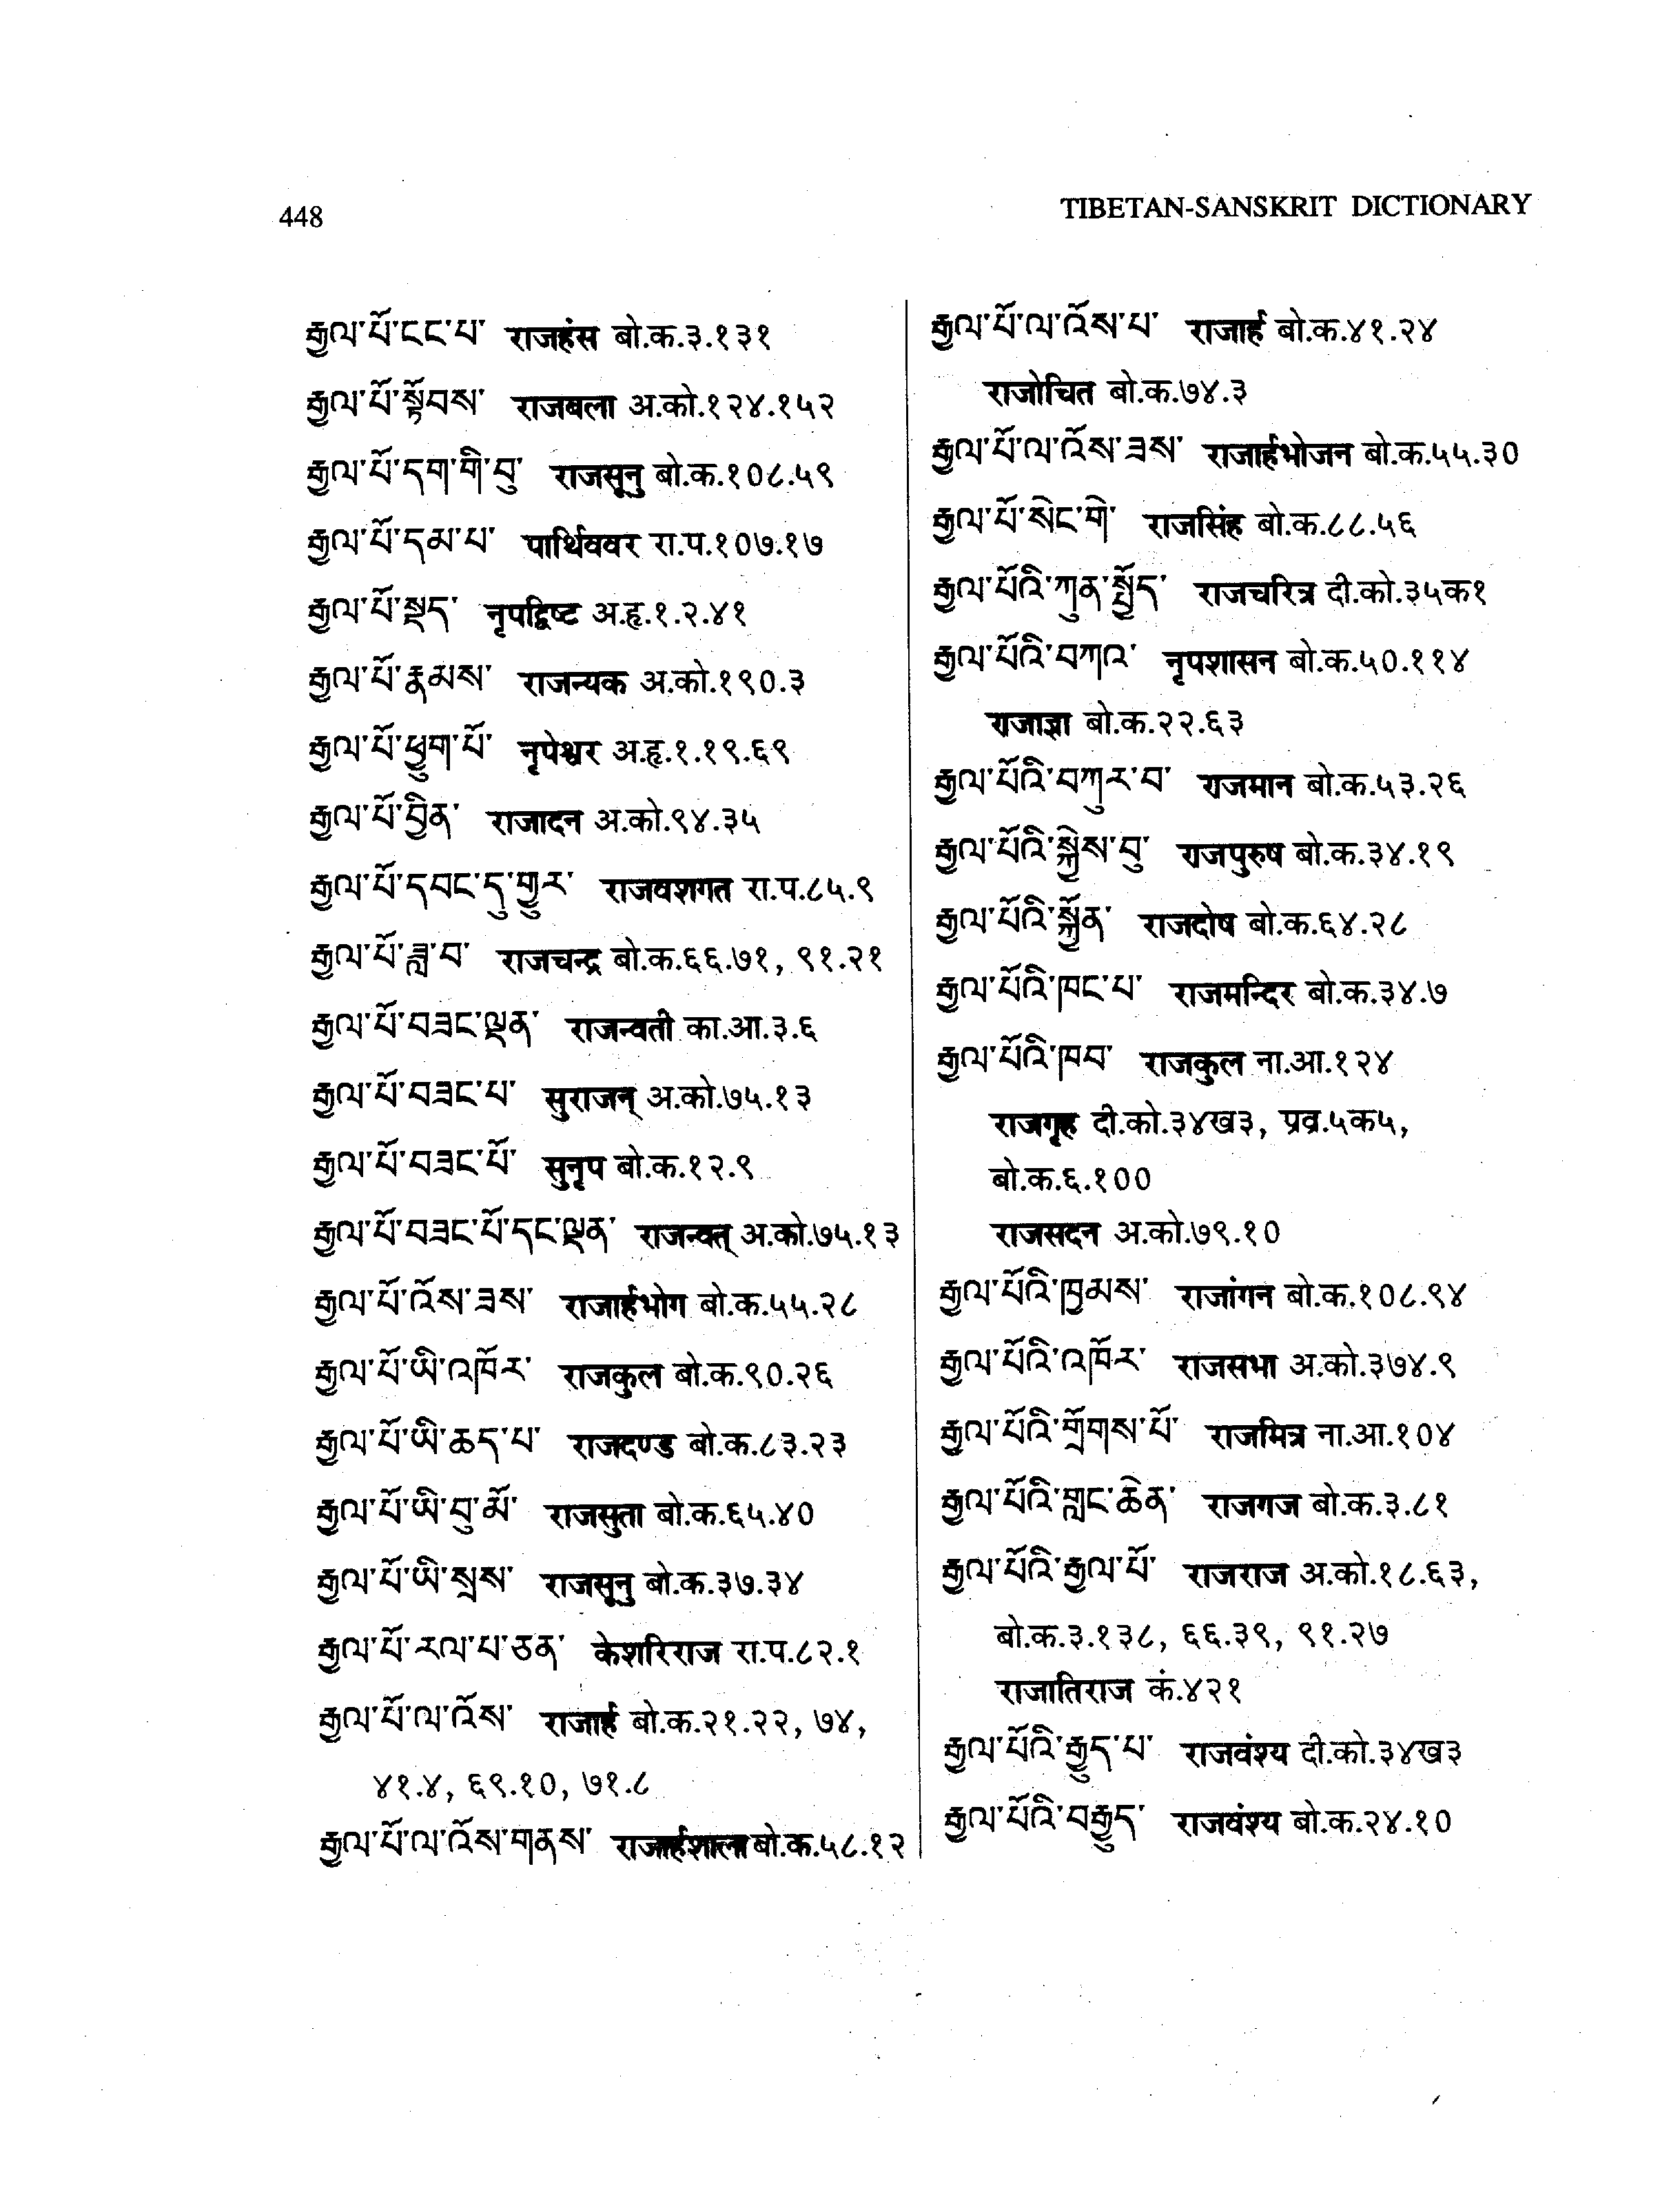 448
TIBETAN-SANSKRIT DICTIONARY
རྒྱལ་པོ་ངང་པ་ राजहंस बो.क.३.१३१
རྒྱལ་པོ་སྟོབས་ राजबला अ.को.१२४.१५२
རྒྱལ་པོ་དག་གི་བུ་ राजसूनु बो.क.१०८.५९
རྒྱལ་པོ་དམ་པ་ पार्थिववर रा.प.१०७.१७
རྒྱལ་པོ་སྡད་ नृपद्विष्ट अ.हृ.१.२.४१
རྒྱལ་པོ་རྣམས་ राजन्यक अ.को.१९०.३
རྒྱལ་པོ་ཕྱུག་པོ་ नृपेश्वर अ.हृ.१.१९.६९
རྒྱལ་པོ་བྱིན་ राजादन अ.को.९४.३५
རྒྱལ་པོ་དབང་དུ་གྱུར་ राजवशगत रा.प.८५.९
རྒྱལ་པོ་ཟླ་བ་ राजचन्द्र बो.क.६६.७१, ९१.२१
རྒྱལ་པོ་བཟང་ལྡན་ राजन्वती का.आ.३.६
རྒྱལ་པོ་བཟང་པ་ सुराजन् अ.को.७५.१३
རྒྱལ་པོ་བཟང་པོ་ सुनृप बो.क.१२.९
རྒྱལ་པོ་བཟང་པོ་དང་ལྡན་ राजन्वत् अ.को.७५.१३
རྒྱལ་པོ་འོས་ཟས་ राजार्हभोग बो.क.५५.२८
རྒྱལ་པོ་ཡི་འཁོར་ राजकुल बो.क.९०.२६
རྒྱལ་པོ་ཡི་ཆད་པ་ राजदण्ड बो.क.८३.२३
རྒྱལ་པོ་ཡི་བུ་མོ་ राजसुता बो.क.६५.४०
རྒྱལ་པོ་ཡི་སྲས་ राजसूनु बो.क.३७.३४
རྒྱལ་པོ་རལ་པ་ཅན་ केशरिराज रा.प.८२.१
རྒྱལ་པོ་ལ་འོས་ राजार्ह बो.क.२१.२२, ७४,
४१.४, ६९.१०, ७१.८
རྒྱལ་པོ་ལ་འོས་གནས་ राजार्हशाला बो.क.५८.१२
རྒྱལ་པོ་ལ་འོས་པ་ राजार्ह बो.क.४१.२४
राजोचित बो.क.७४.३
རྒྱལ་པོ་ལ་འོས་ཟས་ राजार्हभोजन बो.क.५५.३०
རྒྱལ་པོ་སེང་གེ་ राजसिंह बो.क.८८.५६
རྒྱལ་པོའི་ཀུན་སྤྱོད་ राजचरित्र दी.को.३५क१
རྒྱལ་པོའི་བཀའ་ नृपशासन बो.क.५०.११४
राजाज्ञा बो.क.२२.६३
རྒྱལ་པོའི་བཀུར་བ་ राजमान बो.क.५३.२६
རྒྱལ་པོའི་སྐྱེས་བུ་ राजपुरुष बो.क.३४.१९
རྒྱལ་པོའི་སྐྱོན་ राजदोष बो.क.६४.२८
རྒྱལ་པོའི་ཁང་པ་ राजमन्दिर बो.क.३४.७
རྒྱལ་པོའི་ཁབ་ राजकुल ना.आ.१२४
राजगृह दी.को.३४ख३, प्रव्र.५क५,
बो.क.६.१००
राजसदन अ.को.७९.१०
རྒྱལ་པོའི་ཁྱམས་ राजांगन बो.क.१०८.९४
རྒྱལ་པོའི་འཁོར་ राजसभा अ.को.३७४.९
རྒྱལ་པོའི་གྲོགས་པོ་ राजमित्र ना.आ.१०४
རྒྱལ་པོའི་གླང་ཆེན་ राजगज बो.क.३.८१
རྒྱལ་པོའི་རྒྱལ་པོ་ राजराज अ.को.१८.६३,
बो.क.३.१३८, ६६.३९, ९१.२७
राजातिराज कं.४२१
རྒྱལ་པོའི་རྒྱུད་པ་ राजवंश्य दी.को.३४ख३
རྒྱལ་པོའི་བརྒྱུད་ राजवंश्य बो.क.२४.१०